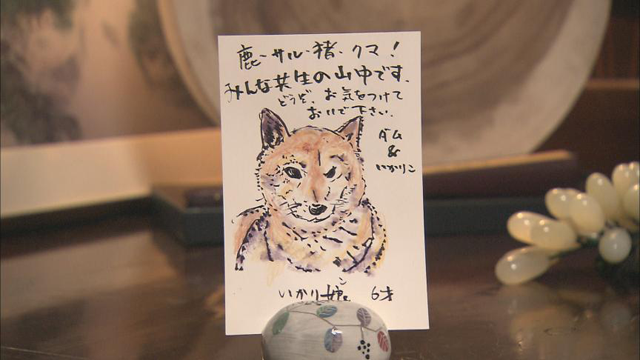 鹿・サル・猪・クマ!
みんな共生の山中です。
どうぞ、お気をつけて
おいで下さい。
ダム
&
いかりこ
いかり娘。 6才